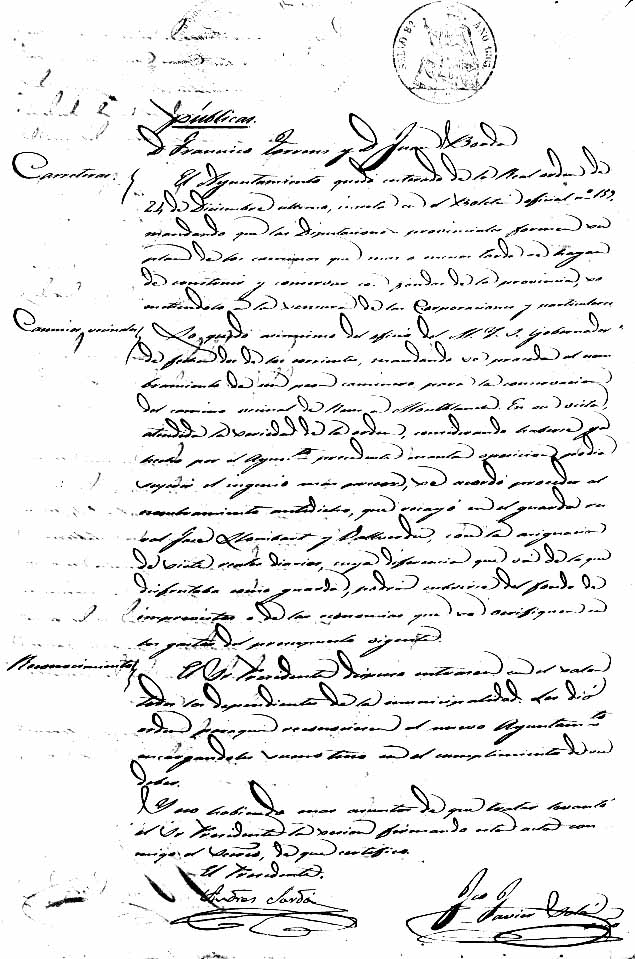 SELLO 8º AÑO
públicas.
D. Francisco Torrens y D. Juan Borda
Carreteras. El Ayuntamiento quedó enterado de la Real orden de
24 de Diciembre último, inserta en el Boletin oficial nº 152,
mandando que las Diputaciones provinciales formen un
plan de los caminos que mas o menos tarde se hayan
de construir y conservar con fondos de la provincia,
á la censura de las Corporaciones y particulares
Caminos vecinales Lo quedó asimismo del oficio del M. I. S. Gobernador
de fecha dos de los corrientes, mandando se proceda al nom-
bramiento de un peon caminero para la conservacion
del camino vecinal de Reus a Montblanch. En su vista,
atendida la de la orden, considerando haberse ya
hecho por el Ayunto precedente cuanta oposicion podia
el ingenio mas, se acordó proceder al
nombramiento antedicho, que recayó en el guarda ru-
ral José Llombart y con la asignacion
de veinte reales diarios, cuya diferencia que vá de lo que
disfrutaba como guarda, podrá cubrirse del fondo de
imprevistos o de las economias que se verifiquen en
los gastos del presupuesto vigente.
Reconocimiento El Sr. Presidente dispuso entrasen en el salon
todos los dependientes de la municipalidad. Les dió
orden paraque reconociesen al nuevo Ayuntamto
encargandoles sumo celo en el cumplimiento de su
deber.
Y no habiendo mas asuntos de que tratar levantó
el Sr. Presidente la sesion firmando esta acta con-
migo el Secreº, de que certifico.
El Presidente.
Andres Sardá
Fco Javier